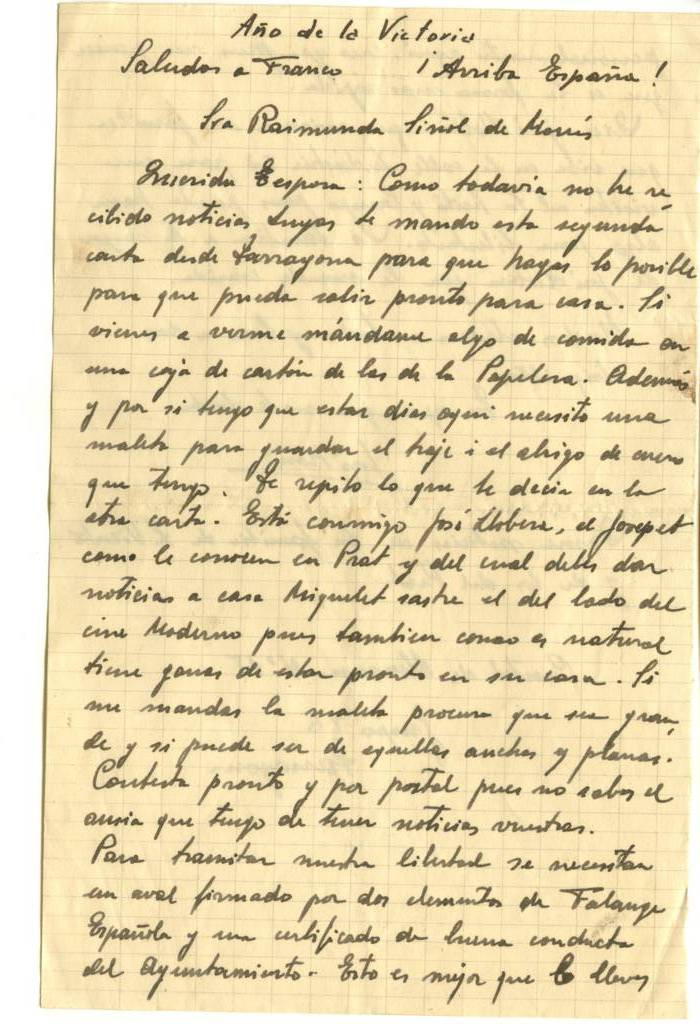 Año de la Victoria
Saludos a Franco ¡Arriba España!
Sra Raimunda Siñol de Monés
Querida Espora: Como todavia no he re-
cibido noticias tuyas te mando esta segunda
carta desde Tarragona para que hagas lo posible
para que pueda salir pronto para casa. Si
vienes a verme mándame algo de comida en
una caja de cartón de las de la Papelera. Además
y por si tengo que estar dias aqui necesito una
maleta para guardar el traje i el abrigo de cuero
que tengo. Te repito lo que te decia en la
otra carta. Está conmigo José Llobera, el Josepet
como le conocen en Prat y del cual debes dar
noticias a casa Miquelet sastre el del lado del
cine Moderno pues tambien como es natural
tiene ganas de estar pronto en su casa. Si
me mandas la maleta procura que sea gran-
de y si puede ser de aquellas anchas y planas.
Contesta pronto y por postal pues no sabes el
ansia que tengo de tener noticias vuestras.
Para tramitar nuestra libertad se necesitan
un aval firmado por dos elementos de Falange
Española y un certificado de buena conducta
del Ayuntamiento. Esto es mejor que lo lleves